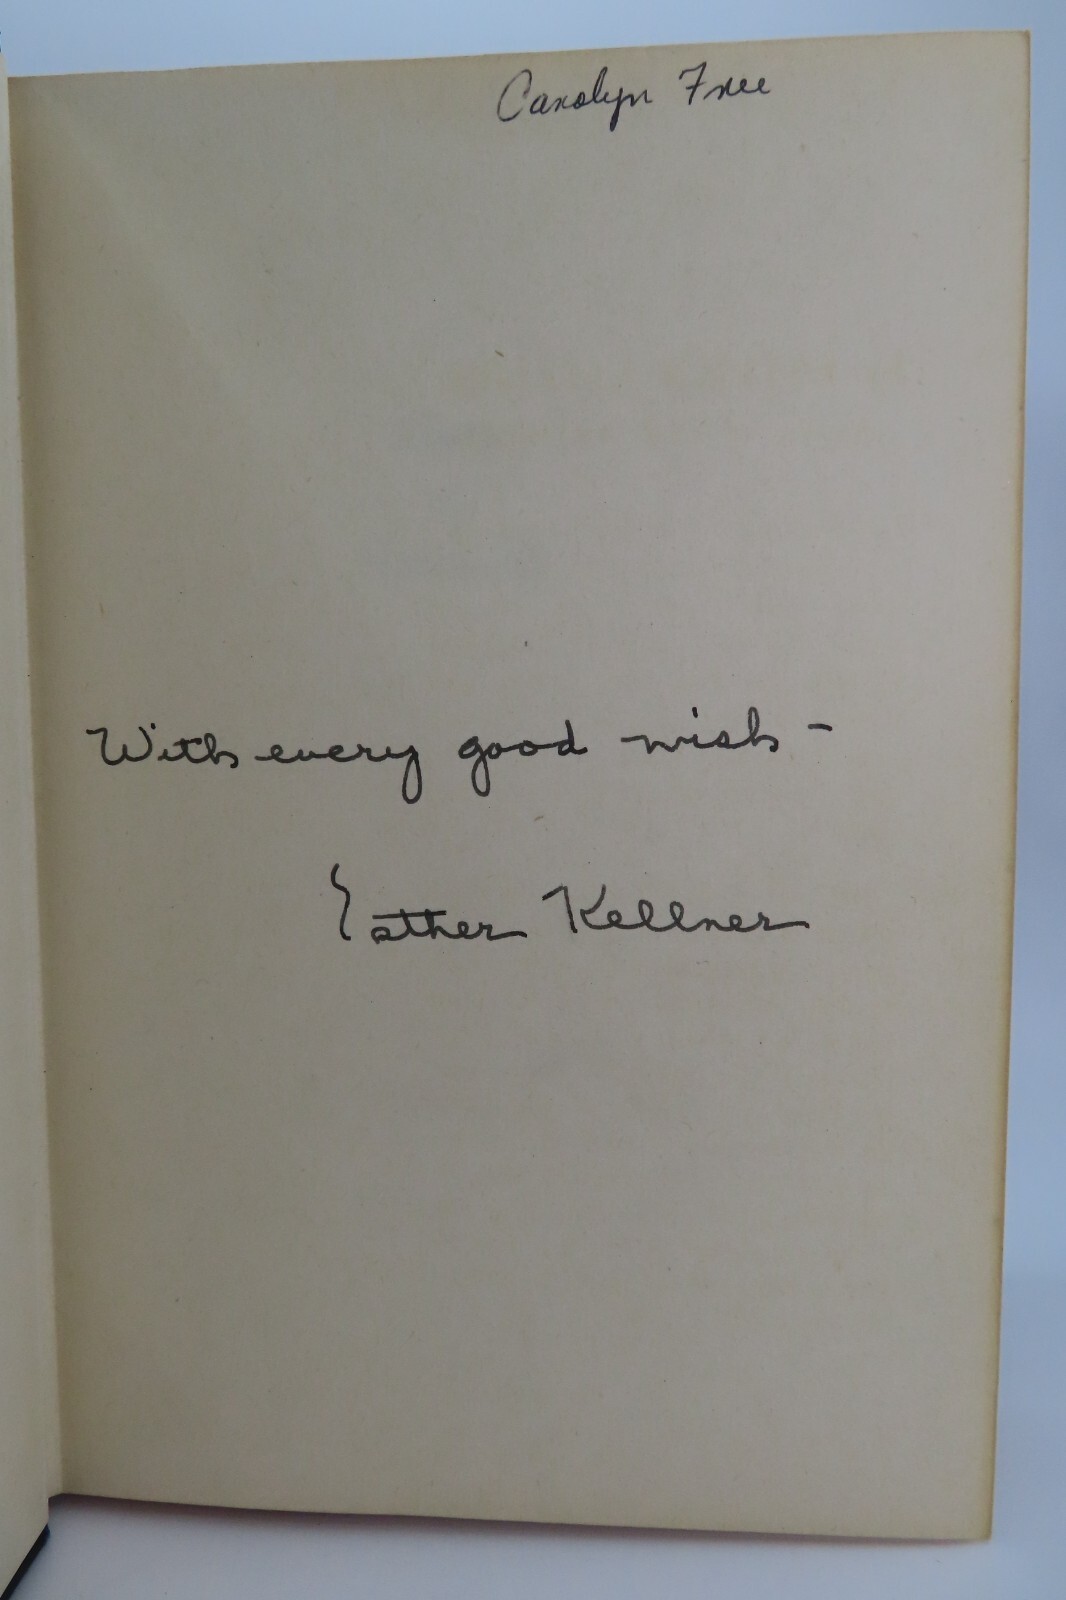 Carolyn Free
With every good wish -
Esther Kellner